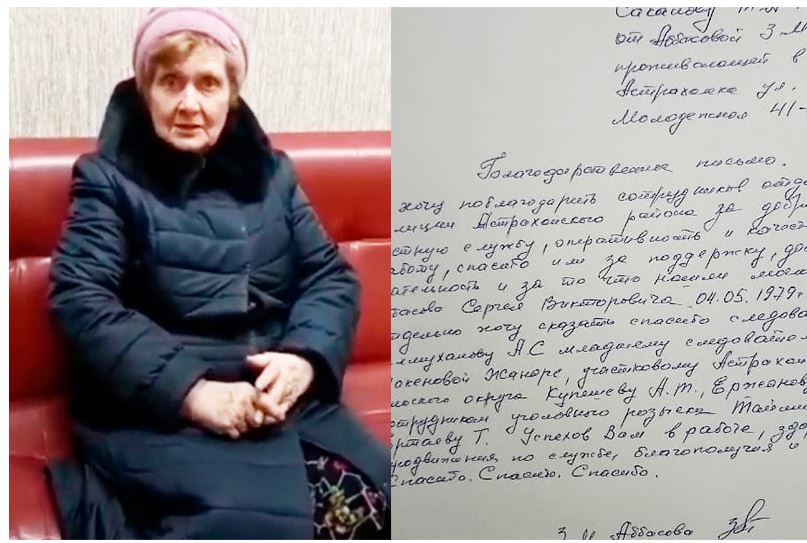 Сакалову М.А
от Аббасовой З
проживающей в
Астраханка ул.
Молодежная 41-
Благодарственное письмо.
хочу поблагодарить сотрудников отде
лиции Астраханского района за добро
стную службу, оперативность и качест
аботу, спасибо им за поддержку,
ательность и за то что нашли моего
басова Сергея Викторовича 04.05.1979г
тдельно хочу сказать спасибо следова
лмуханову А С младшему следовател
океновой Жанаре, участковому Астрахан
льского округа Купешеву А.Т., Ержанов
отрудникам уголовного розыска
ртаеву Т. Успехов Вам в работе, здо
родвижения по службе, благополучия и
Спасибо. Спасибо. Спасибо.
З М Аббасова